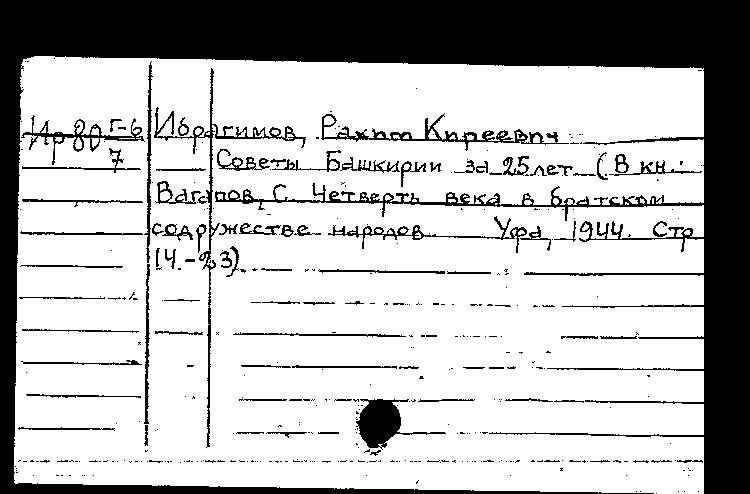 Ир80 Г-6 Ибрагимов, Рахим Киреевич
7 Советы Башкирии за 25 лет. (В кн.:
Вагапов, С. Четверть века в братском
содружестве народов. Уфа, 1944. Стр
14.-23).